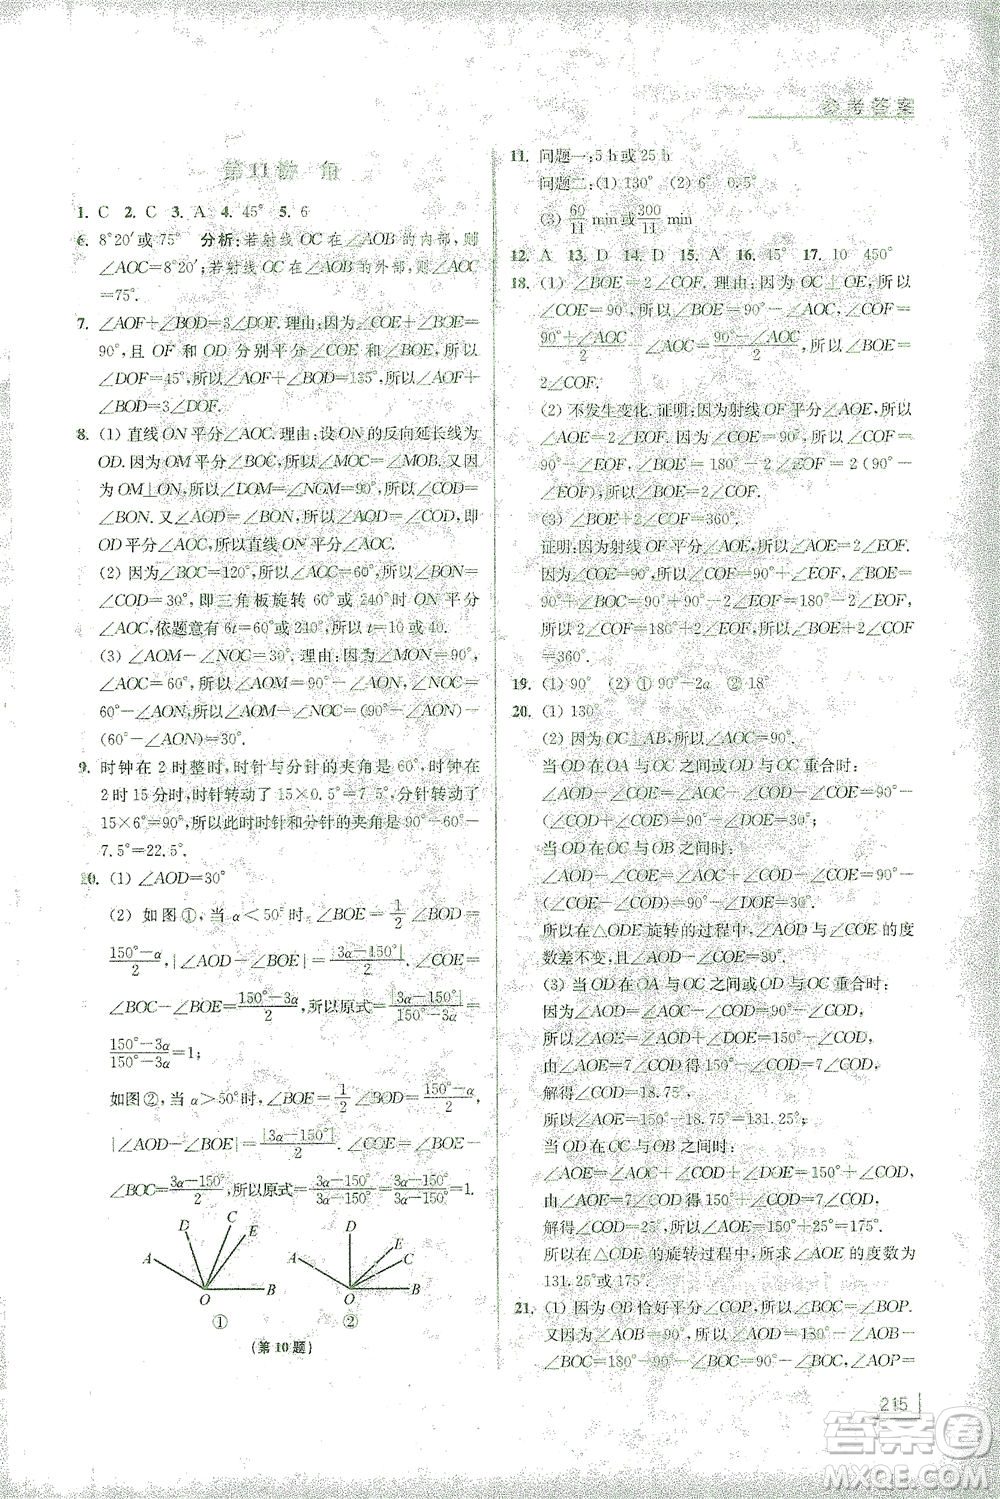 参考答案
第11讲 角
1. C 2. C 3. A 4. 45° 5. 6
6. 8°20′或75° 分析:若射线OC在∠AOB的内部,则
∠AOC=8°20′;若射线OC在∠AOB的外部,则∠AOC
=75°.
7. ∠AOF+∠BOD=3∠DOF.理由:因为∠AOB=
90°,且 OF 和 OD 分别平分∠COE 和∠BOE,所以
∠DOF=45°,所以∠AOF+∠BOD=135°,所以∠AOF+
∠BOD=3∠DOF.
8. (1) 直线ON平分∠AOC.理由:设ON的反向延长线为
OD.因为OM平分∠BOC,所以∠MOC=∠MOB.又因
为OM⊥ON,所以∠DOM=∠NOM=90°,所以∠COD=
∠BON.又∠AOD=∠BON,所以∠AOD=∠COD,即
OD平分∠AOC,所以直线ON平分∠AOC.
(2) 因为∠BOC=120°,所以∠AOC=60°,所以∠BON=
∠COD=30°,即三角板旋转60°或240°时ON平分
∠AOC,依题意有6t=60°或240°,所以t=10或40.
(3) ∠AOM-∠NOC=30°.理由:因为∠MON=90°,
∠AOC=60°,所以∠AOM=90°-∠AON,∠NOC=
60°-∠AON,所以∠AOM-∠NOC=(90°-∠AON)-
(60°-∠AON)=30°.
9. 时钟在2时整时,时针与分针的夹角是60°,时钟在
2时15分时,时针转动了15×0.5°=7.5°,分针转动了
15×6°=90°,所以此时时针和分针的夹角是90°-60°-
7.5°=22.5°.
10. (1) ∠AOD=30°
(2) 如图①,当α<50°时,∠BOE=1/2∠BOD=
(150°-α)/2,|∠AOD-∠BOE|=|3α-150°|/2.∠COE
=∠BOC-∠BOE=(150°-3α)/2,所以原式=|3α-150°|/(150°-3α)=
(150°-3α)/(150°-3α)=1;
如图②,当α>50°时,∠BOE=1/2∠BOD=(150°-α)/2,
|∠AOD-∠BOE|=|3α-150°|/2,∠COE=∠BOE-
∠BOC=(3α-150°)/2,所以原式=|3α-150°|/(3α-150°)=(3α-150°)/(3α-150°)=1.
D C E A O B
①
D E C A O B
②
(第10题)
11. 问题一:5 h或25 h
问题二:(1) 130° (2) 6° 0.5°
(3) 60/11 min或300/11 min
12. A 13. D 14. D 15. A 16. 45° 17. 10 450°
18. (1) ∠BOE=2∠COF.理由:因为OC⊥OE,所以
∠COE=90°,所以∠COF=90°-∠EOF,∠AOC=
(2) 不发生变化.证明:因为射线OF平分∠AOE,所以
∠AOE=2∠EOF,所以∠BOE=180°-2∠EOF.因为
∠COE=90°,所以∠COF=90°-∠EOF,所以2∠COF=2(90°-
∠EOF),所以∠BOE=2∠COF.
(3) ∠BOE+2∠COF=360°.
证明:因为射线OF平分∠AOE,所以∠AOE=2∠EOF.
因为∠COE=90°,所以∠COF=90°+∠EOF,
所以2∠COF=180°+2∠EOF,所以∠BOE+2∠COF
=360°.
19. (1) 90° (2) ① 90°-2α ② 18°
20. (1) 130°
(2) 因为OC⊥AB,所以∠AOC=∠BOC=90°.
当OD在OA与OC之间或与OC重合时:
∠AOD=90°-∠COD,∠COE=60°-∠COD,
所以∠AOD-∠COE=90°-∠COD-(60°-
∠COD)=30°;
当OD在OC与OB之间时:
∠AOD=90°+∠COD,∠COE=60°+∠COD,
所以∠AOD-∠COE=30°.
所以在△ODE旋转的过程中,∠AOD与∠COE的度
数差不变,且∠AOD-∠COE=30°.
(3) 当OD在OA与OC之间或OD与OC重合时:
因为∠AOD=∠AOC-∠COD=90°-∠COD,
所以∠AOE=∠AOD+∠DOE=150°-∠COD,
由∠AOE=7∠COD得150°-∠COD=7∠COD,
解得∠COD=18.75°.
所以∠AOE=150°-18.75°=131.25°.
当OD在OC与OB之间时:
∠AOE=∠AOC+∠COD+∠DOE=150°+∠COD,
由∠AOE=7∠COD得150°+∠COD=7∠COD,
解得∠COD=25°,所以∠AOE=150°+25°=175°.
所以在△ODE的旋转过程中,所求∠AOE的度数为
131.25°或175°.
21. (1) 因为OB恰好平分∠COP,所以∠BOC=∠BOP.
又因为∠AOB=90°,所以∠AOC=180°-∠AOB-
∠BOC=180°-90°-∠BOC=90°-∠BOC,∠AOP=
215
答案圈
MXQE.COM